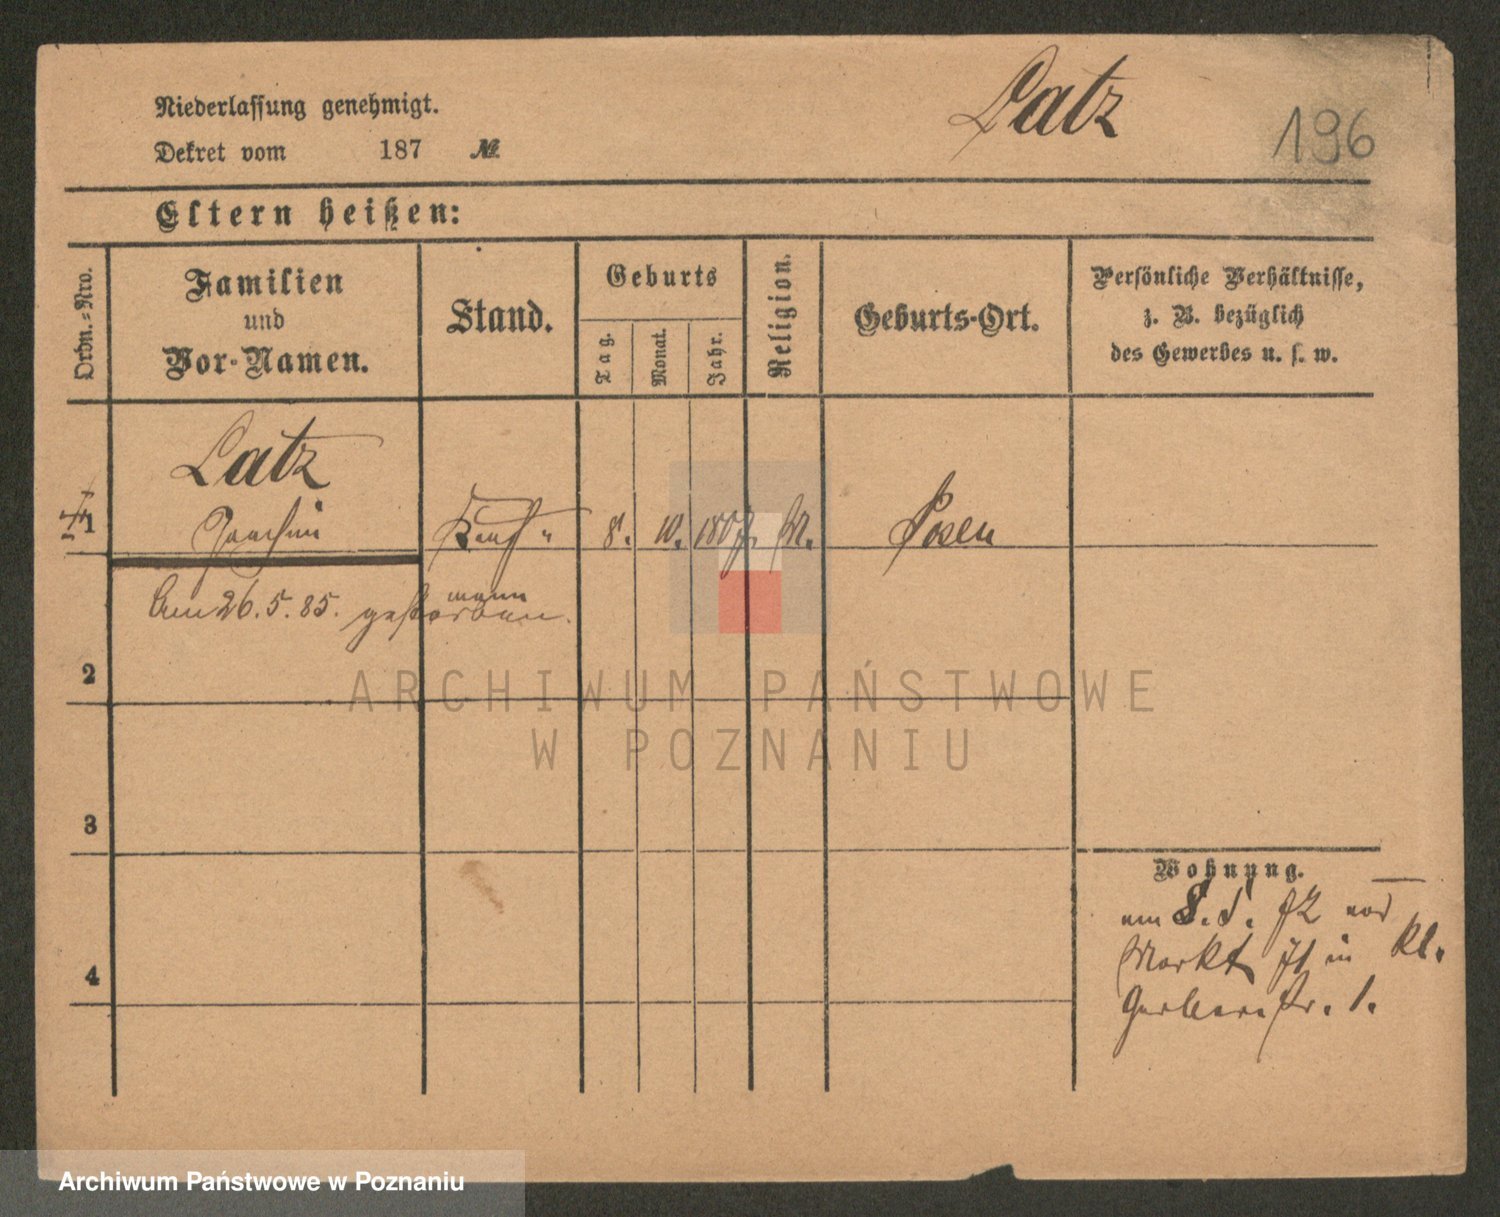 Latz
196
Niederlassung genehmigt.
Dekret vom 187 №
Eltern heißen:
Ordn.=Nro.
Familien
und
Vor-Namen.
Stand.
Geburts
Tag.
Monat.
Jahr.
Religion.
Geburts-Ort.
Persönliche Verhältnisse,
z. B. bezüglich
des Gewerbes u. s. w.
Latz
1 Joachim Kauf 8. 10. M. Posen
mann
Am 26. 5. 85. gestorben.
2
ARCHIWUM PAŃSTWOWE
W POZNANIU
3
Wohnung.
Markt in Kl.
Gerberstr. 1.
4
Archiwum Państwowe w Poznaniu